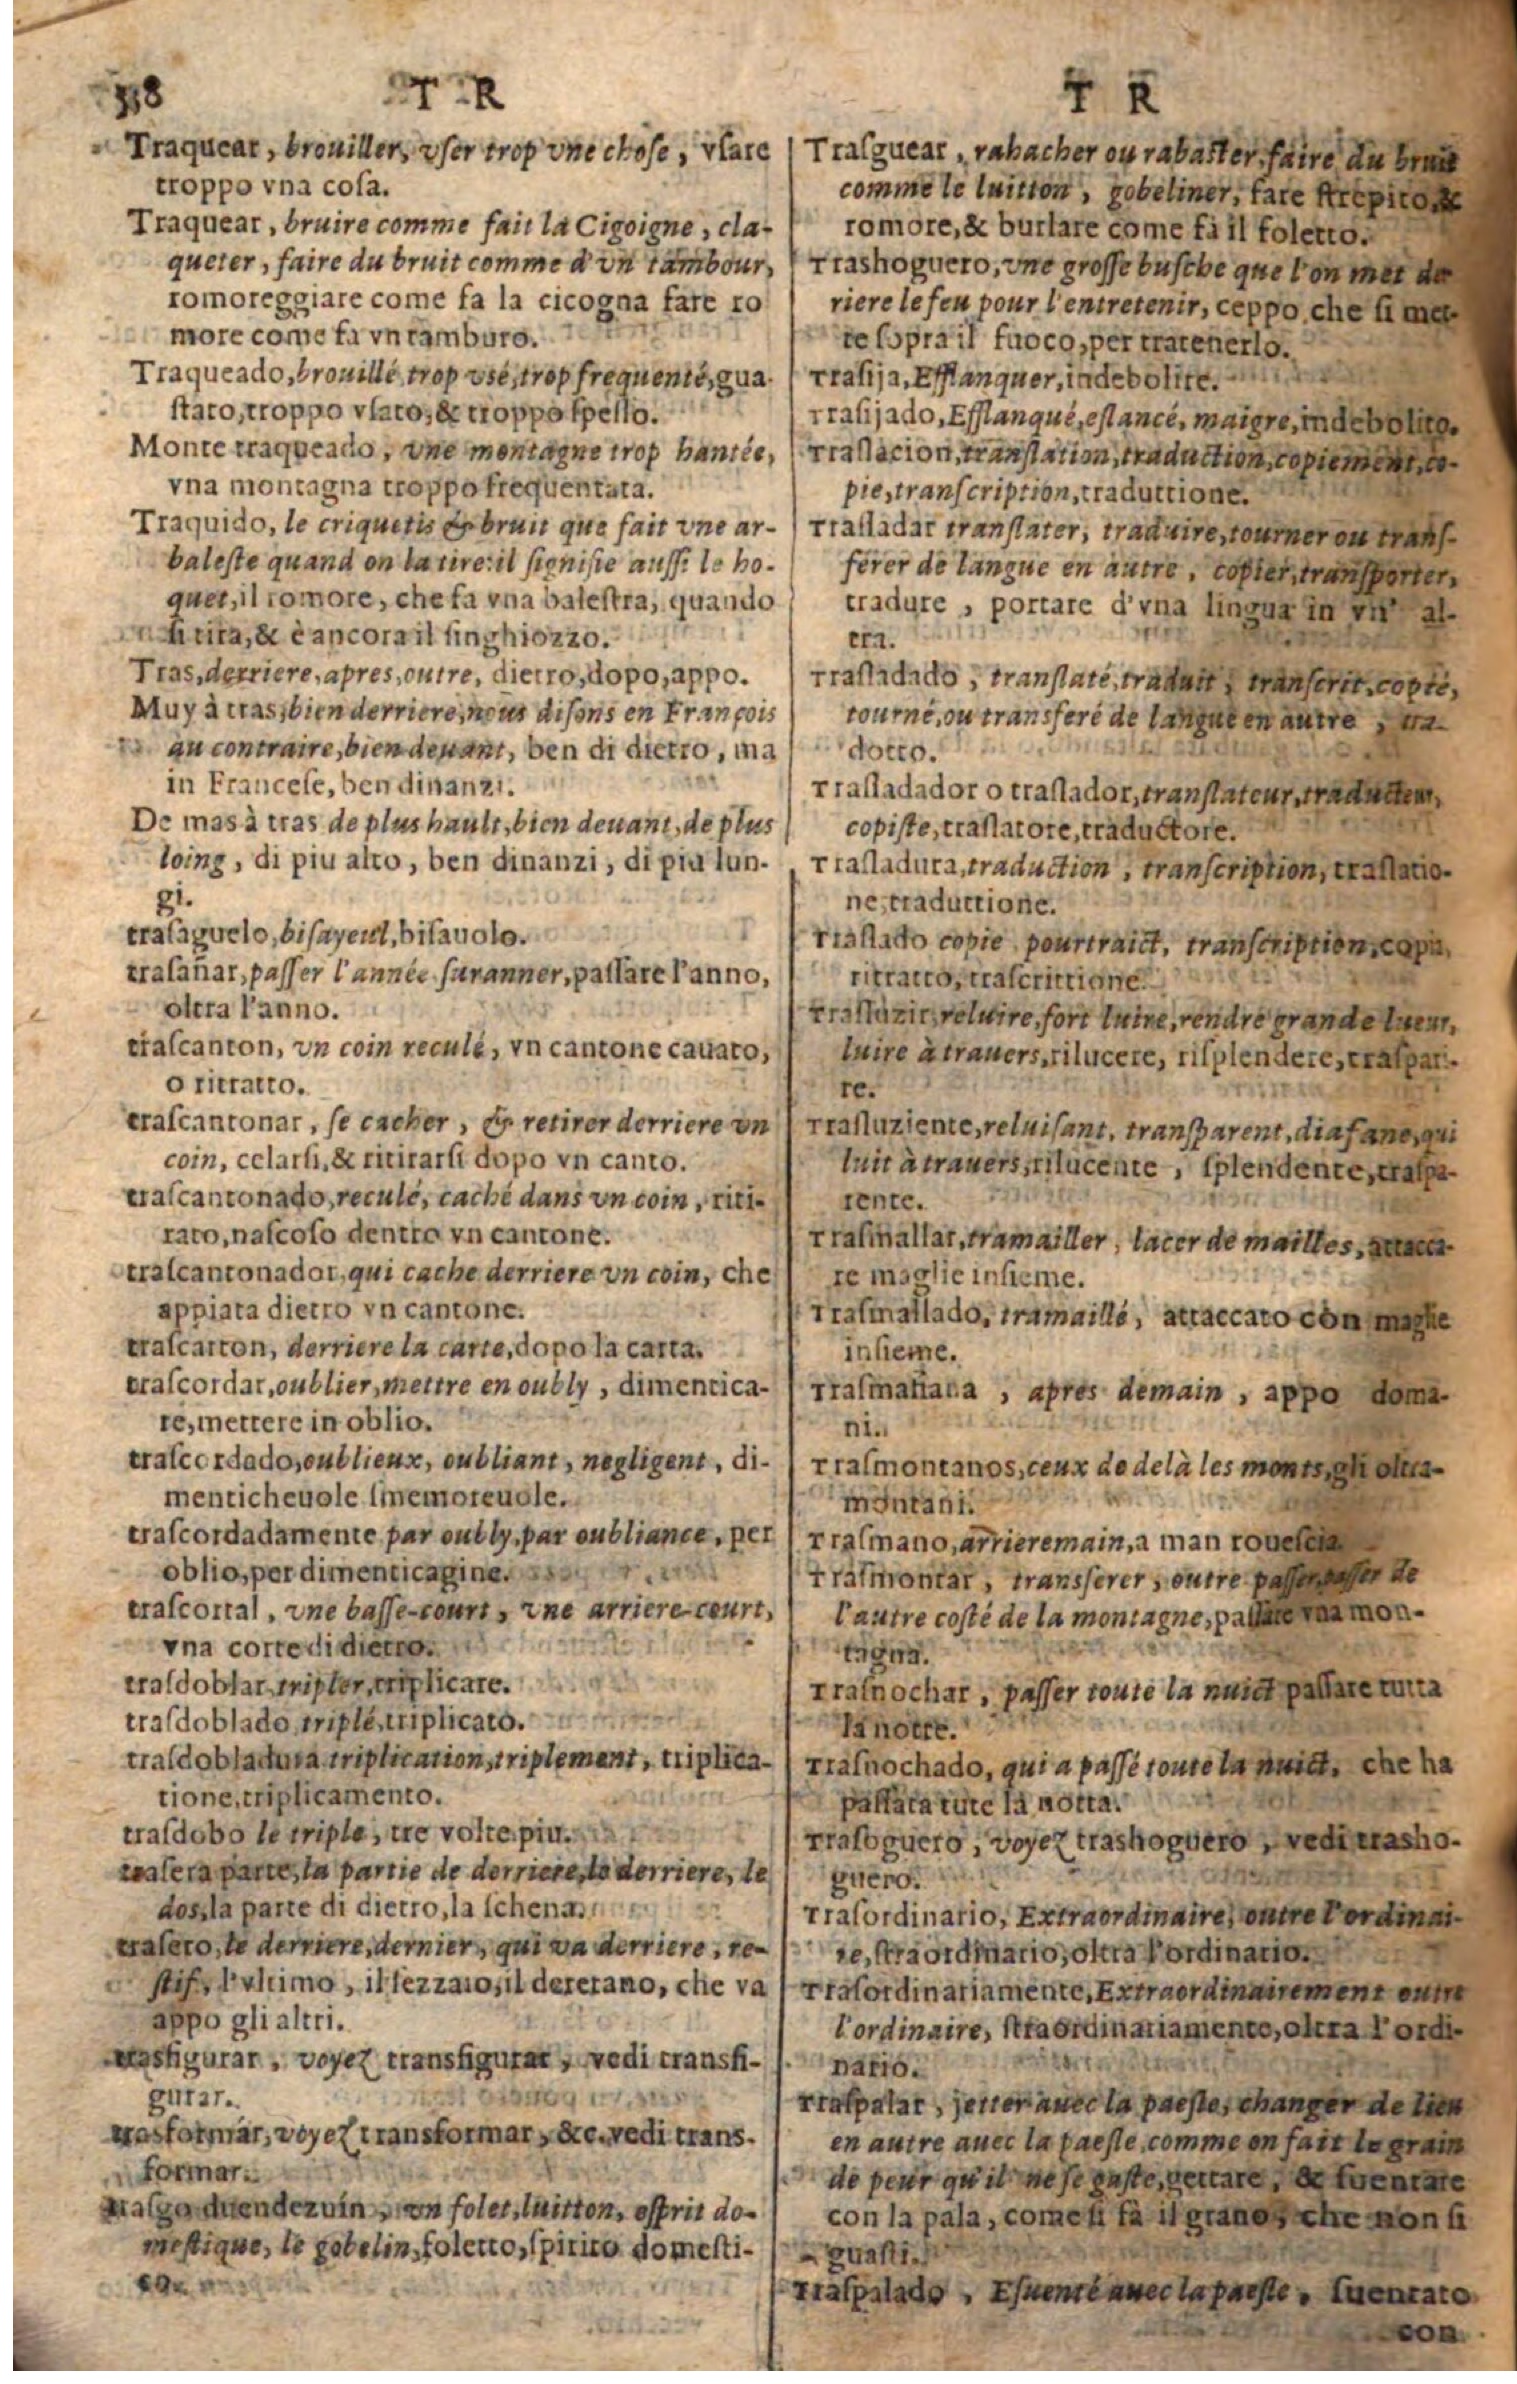 T R
Traquear, brouiller, vser trop vne chose, vſare
troppo vna coſa.
Traquear, bruire comme fait la Cigoigne, cla-
queter, faire du bruit comme d'vn tambour,
romoreggiare come fa la cicogna fare ro
more come fa vn tamburo.
Traqueado, brouillé, trop vsé, trop frequenté, gua-
ſtato, troppo vſato, & troppo ſpeſſo.
Monte traqueado, vne montagne trop hantée,
vna montagna troppo frequentata.
Traquido, le criquetis & bruit que fait vne ar-
baleſte quand on la tire: il ſignifie auſſi le ho-
quet, il romore, che fa vna baleſtra, quando
ſi tira, & è ancora il ſinghiozzo.
Tras, derriere, apres, outre, dietro, dopo, appo.
Muy à tras, bien derriere, nous diſons en François
au contraire, bien deuant, ben di dietro, ma
in Franceſe, ben dinanzi.
De mas à tras de plus hault, bien deuant, de plus
loing, di piu alto, ben dinanzi, di piu lun-
gi.
traſaguelo, biſayeul, biſauolo.
traſañar, paſſer l'année ſuranner, paſſare l'anno,
oltra l'anno.
traſcanton, vn coin reculé, vn cantone cauato,
o ritratto.
traſcantonar, ſe cacher, & retirer derriere vn
coin, celarſi, & ritirarſi dopo vn canto.
traſcantonado, reculé, caché dans vn coin, riti-
rato, naſcoſo dentro vn cantone.
traſcantonador, qui cache derriere vn coin, che
appiata dietro vn cantone.
traſcarton, derriere la carte, dopo la carta.
traſcordar, oublier, mettre en oubly, dimentica-
re, mettere in oblio.
traſcordado, oublieux, oubliant, negligent, di-
menticheuole ſmemoreuole.
traſcordadamente par oubly, par oubliance, per
oblio, per dimenticagine.
traſcorral, vne baſſe-court, vne arriere-court,
vna corte di dietro.
traſdoblar, tripler, triplicare.
traſdoblado triplé, triplicato.
traſdobladura triplication, triplement, triplica-
tione, triplicamento.
traſdobo le triple, tre volte piu.
traſera parte, la partie de derriere, le derriere, le
dos, la parte di dietro, la ſchena.
traſero, le derriere, dernier, qui va derriere, re-
ſtif, l'vltimo, il ſezzaio, il deretano, che va
appo gli altri.
trasfigurar, voyez transfigurar, vedi transfi-
gurar.
trasformar, voyez transformar, &c. vedi trans-
formar.
traſgo duendezuin, vn folet, luitton, eſprit do-
meſtique, le gobelin, foletto, ſpirito domeſti-
co.
T R
Traſguear, rabacher ou rabaſter, faire du bruit
comme le luitton, gobeliner, fare ſtrepito, &
romore, & burlare come fà il foletto.
Trashoguero, vne groſſe buſche que l'on met der
riere le feu pour l'entretenir, ceppo che ſi met-
te ſopra il fuoco, per tratenerlo.
Traſija, Efflanquer, indebolire.
Traſijado, Efflanqué, eſlancé, maigre, indebolito.
Traſlacion, tranſlation, traduction, copiement, co-
pie, tranſcription, traduttione.
Traſladar tranſlater, traduire, tourner ou tranſ-
ferer de langue en autre, copier, tranſporter,
tradure, portare d'vna lingua in vn' al-
tra.
Traſladado, tranſlaté, traduit, tranſcrit, copié,
tourné, ou transferé de langue en autre, tra-
dotto.
Traſladador o traſlador, tranſlateur, traducteur,
copiſte, traſlatore, traductore.
Traſladura, traduction, tranſcription, traſlatio-
ne, traduttione.
Traſlado copie pourtraict, tranſcription, copia,
ritratto, traſcrittione.
Traſluzir, reluire, fort luire, rendre grande lueur,
luire à trauers, rilucere, riſplendere, traſpari-
re.
Traſluziente, reluiſant, tranſparent, diafane, qui
luit à trauers, rilucente, ſplendente, traſpa-
rente.
Traſmallar, tramailler, lacer de mailles, attacca-
re maglie inſieme.
Traſmallado, tramaillé, attaccato con maglie
inſieme.
Traſmañana, apres demain, appo doma-
ni.
Traſmontanos, ceux de delà les monts, gli oltra-
montani.
Traſmano, arrieremain, a man roueſcia.
Traſmontar, transferer, outre paſſer, paſſer de
l'autre coſté de la montagne, paſſare vna mon-
tagna.
Traſnochar, paſſer toute la nuict paſſare tutta
la notte.
Traſnochado, qui a paſſé toute la nuict, che ha
paſſata tute la notta.
Traſoguero, voyez trashoguero, vedi trasho-
guero.
Traſordinario, Extraordinaire, outre l'ordinai-
re, ſtraordinario, oltra l'ordinario.
Traſordinariamente, Extraordinairement outre
l'ordinaire, ſtraordinariamente, oltra l'ordi-
nario.
Traſpalar, jetter auec la paeſle, changer de lieu
en autre auec la paeſle comme on fait le grain
de peur qu'il ne ſe guſte, gettare, & ſuentare
con la pala, come ſi fà il grano, che non ſi
guaſti.
Traſpalado, Eſuenté auec la paeſle, ſuentato
con